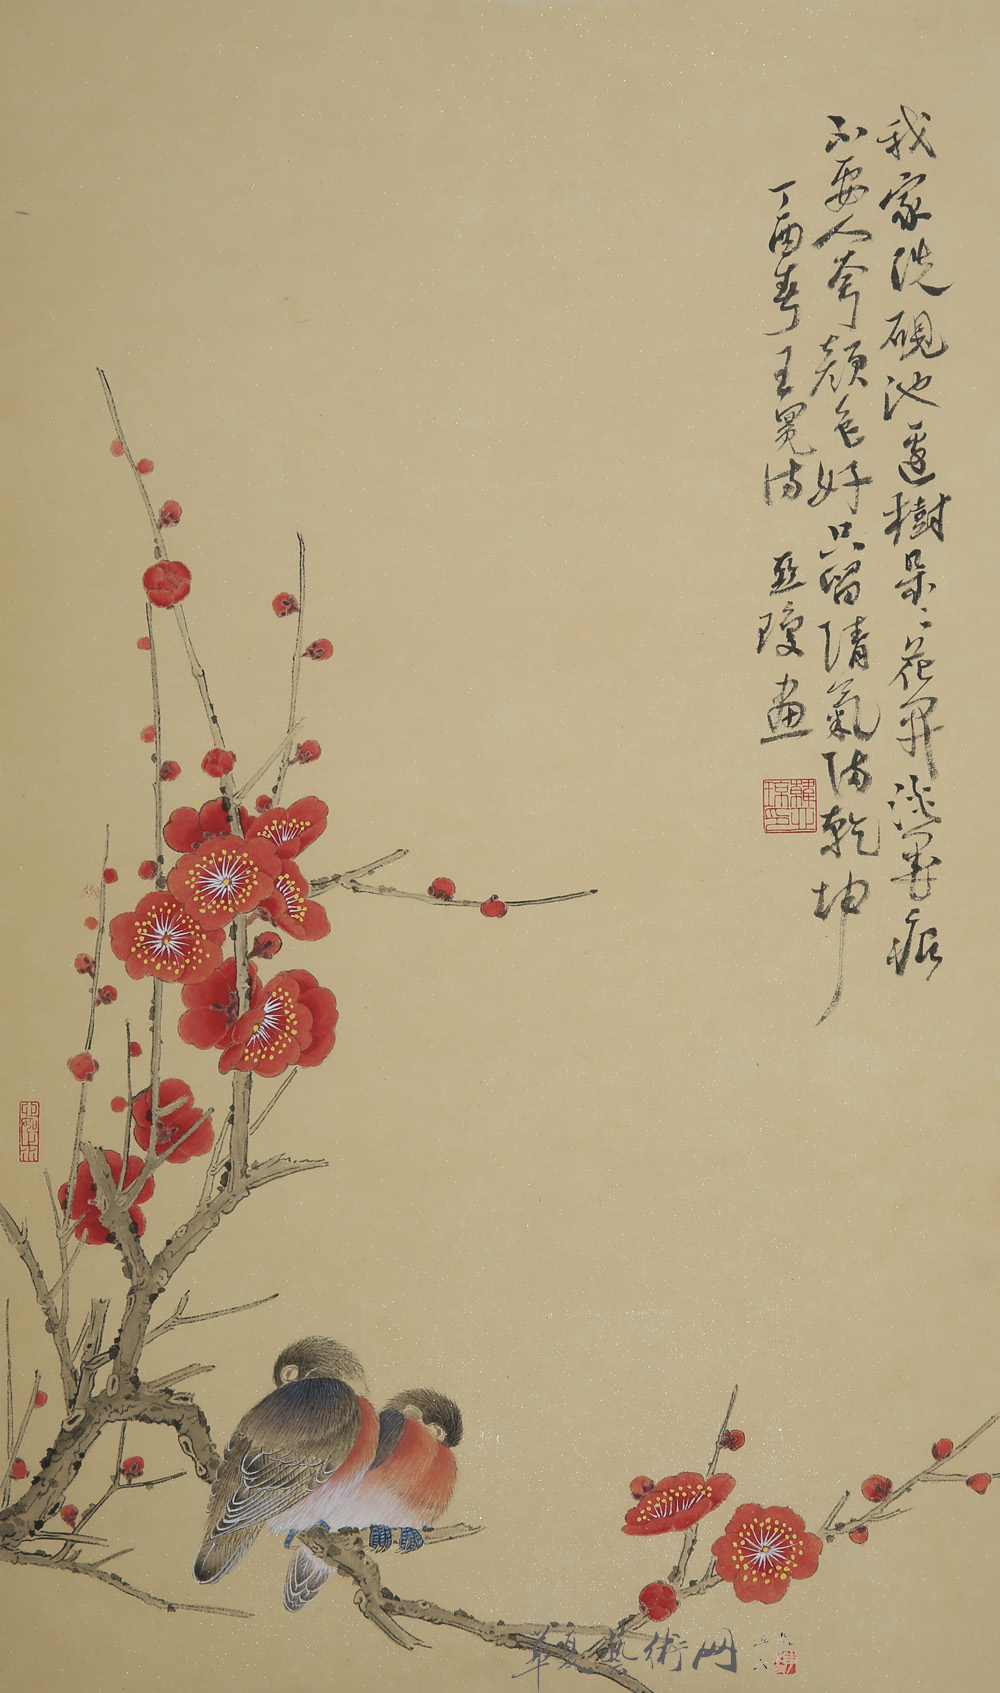 我家洗硯池邊樹朵〻花開淡墨痕
不要人夸顏色好只留清氣滿乾坤
丁酉春王冕诗 亞瓊畫
華夏藝術网